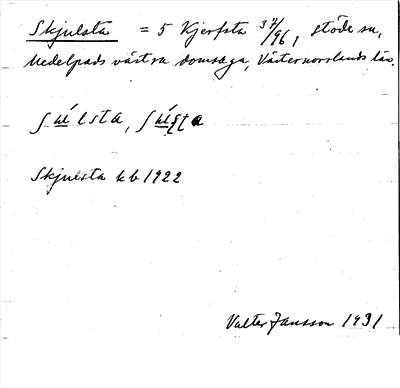 Skjulsta = 5 Kjerfsta 37/96, Stöde sn,
Medelpads västra domsaga, Västernorrlands län.
Skjulsta kb 1922
Valter Jansson 1931